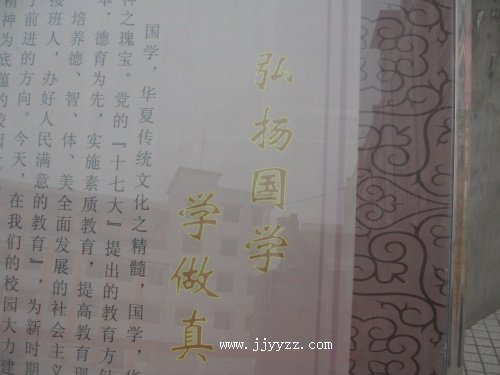 弘扬国学
学做真
国学，华夏传统文化之精髓，国学，华
神之瑰宝。党的『十七大』提出的教育方针
本，德育为先，实施素质教育，提高教育现
培养德、智、体、美全面发展的社会主义
接班人，办好人民满意的教育』，为新时期
了前进的方向。今天，在我们的校园大力建
精神为底蕴的校园
www.jjyyzz.com